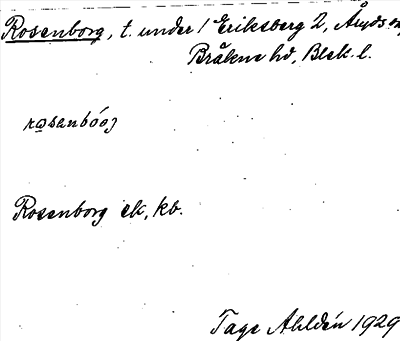 Rosenborg, t. under 1 Eriksberg 2, Åryds
Bräkne hd, Blek. l.
Rosenborg ek, kb.
Tage Ahldén 1929